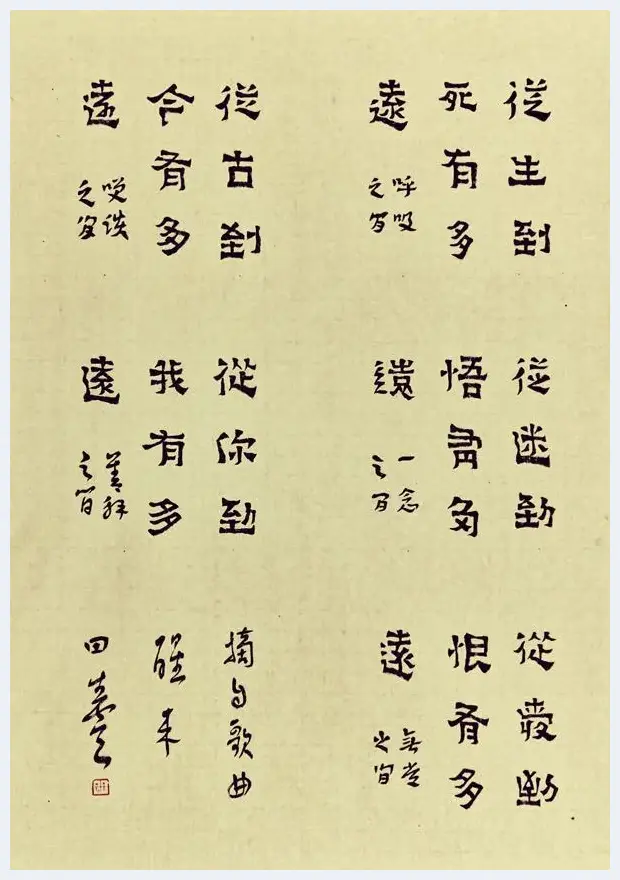 從生到
死有多
遠
呼吸
之間
從迷到
悟有多
遠
一念
之間
從愛到
恨有多
遠
無常
之間
從古到
今有多
遠
咲談
之間
從你到
我有多
遠
善解
之間
摘自歌曲
醒来
田